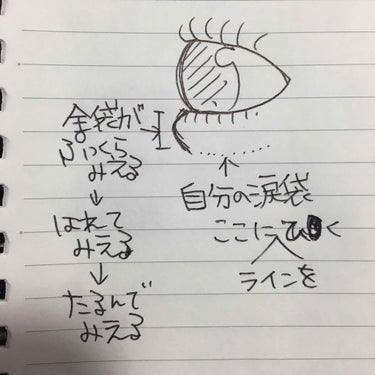 袋が
ぷっくら
みえる
↓
はれて
みえる
↓
たるんで
みえる
↑
自分の涙袋
ここにひく
ラインを